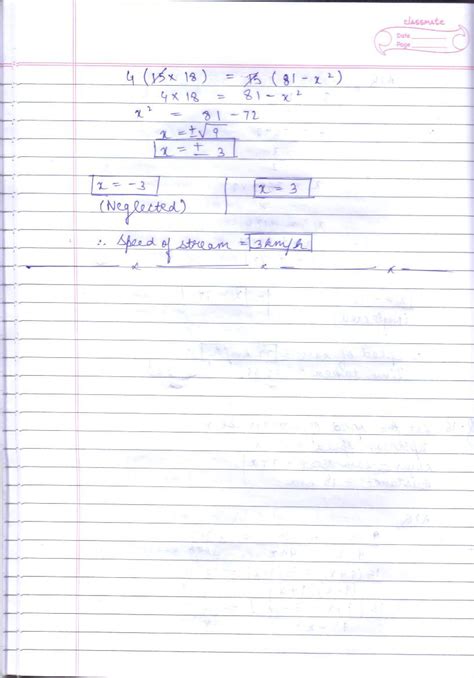 classmate
Date
Page
4 (15 x 18) = 15 (81 - x²)
4 x 18 = 81 - x²
x² = 81 - 72
x = ±√9
x = ± 3
x = -3 x = 3
(Neglected)
∴ Speed of stream = 3 km/h